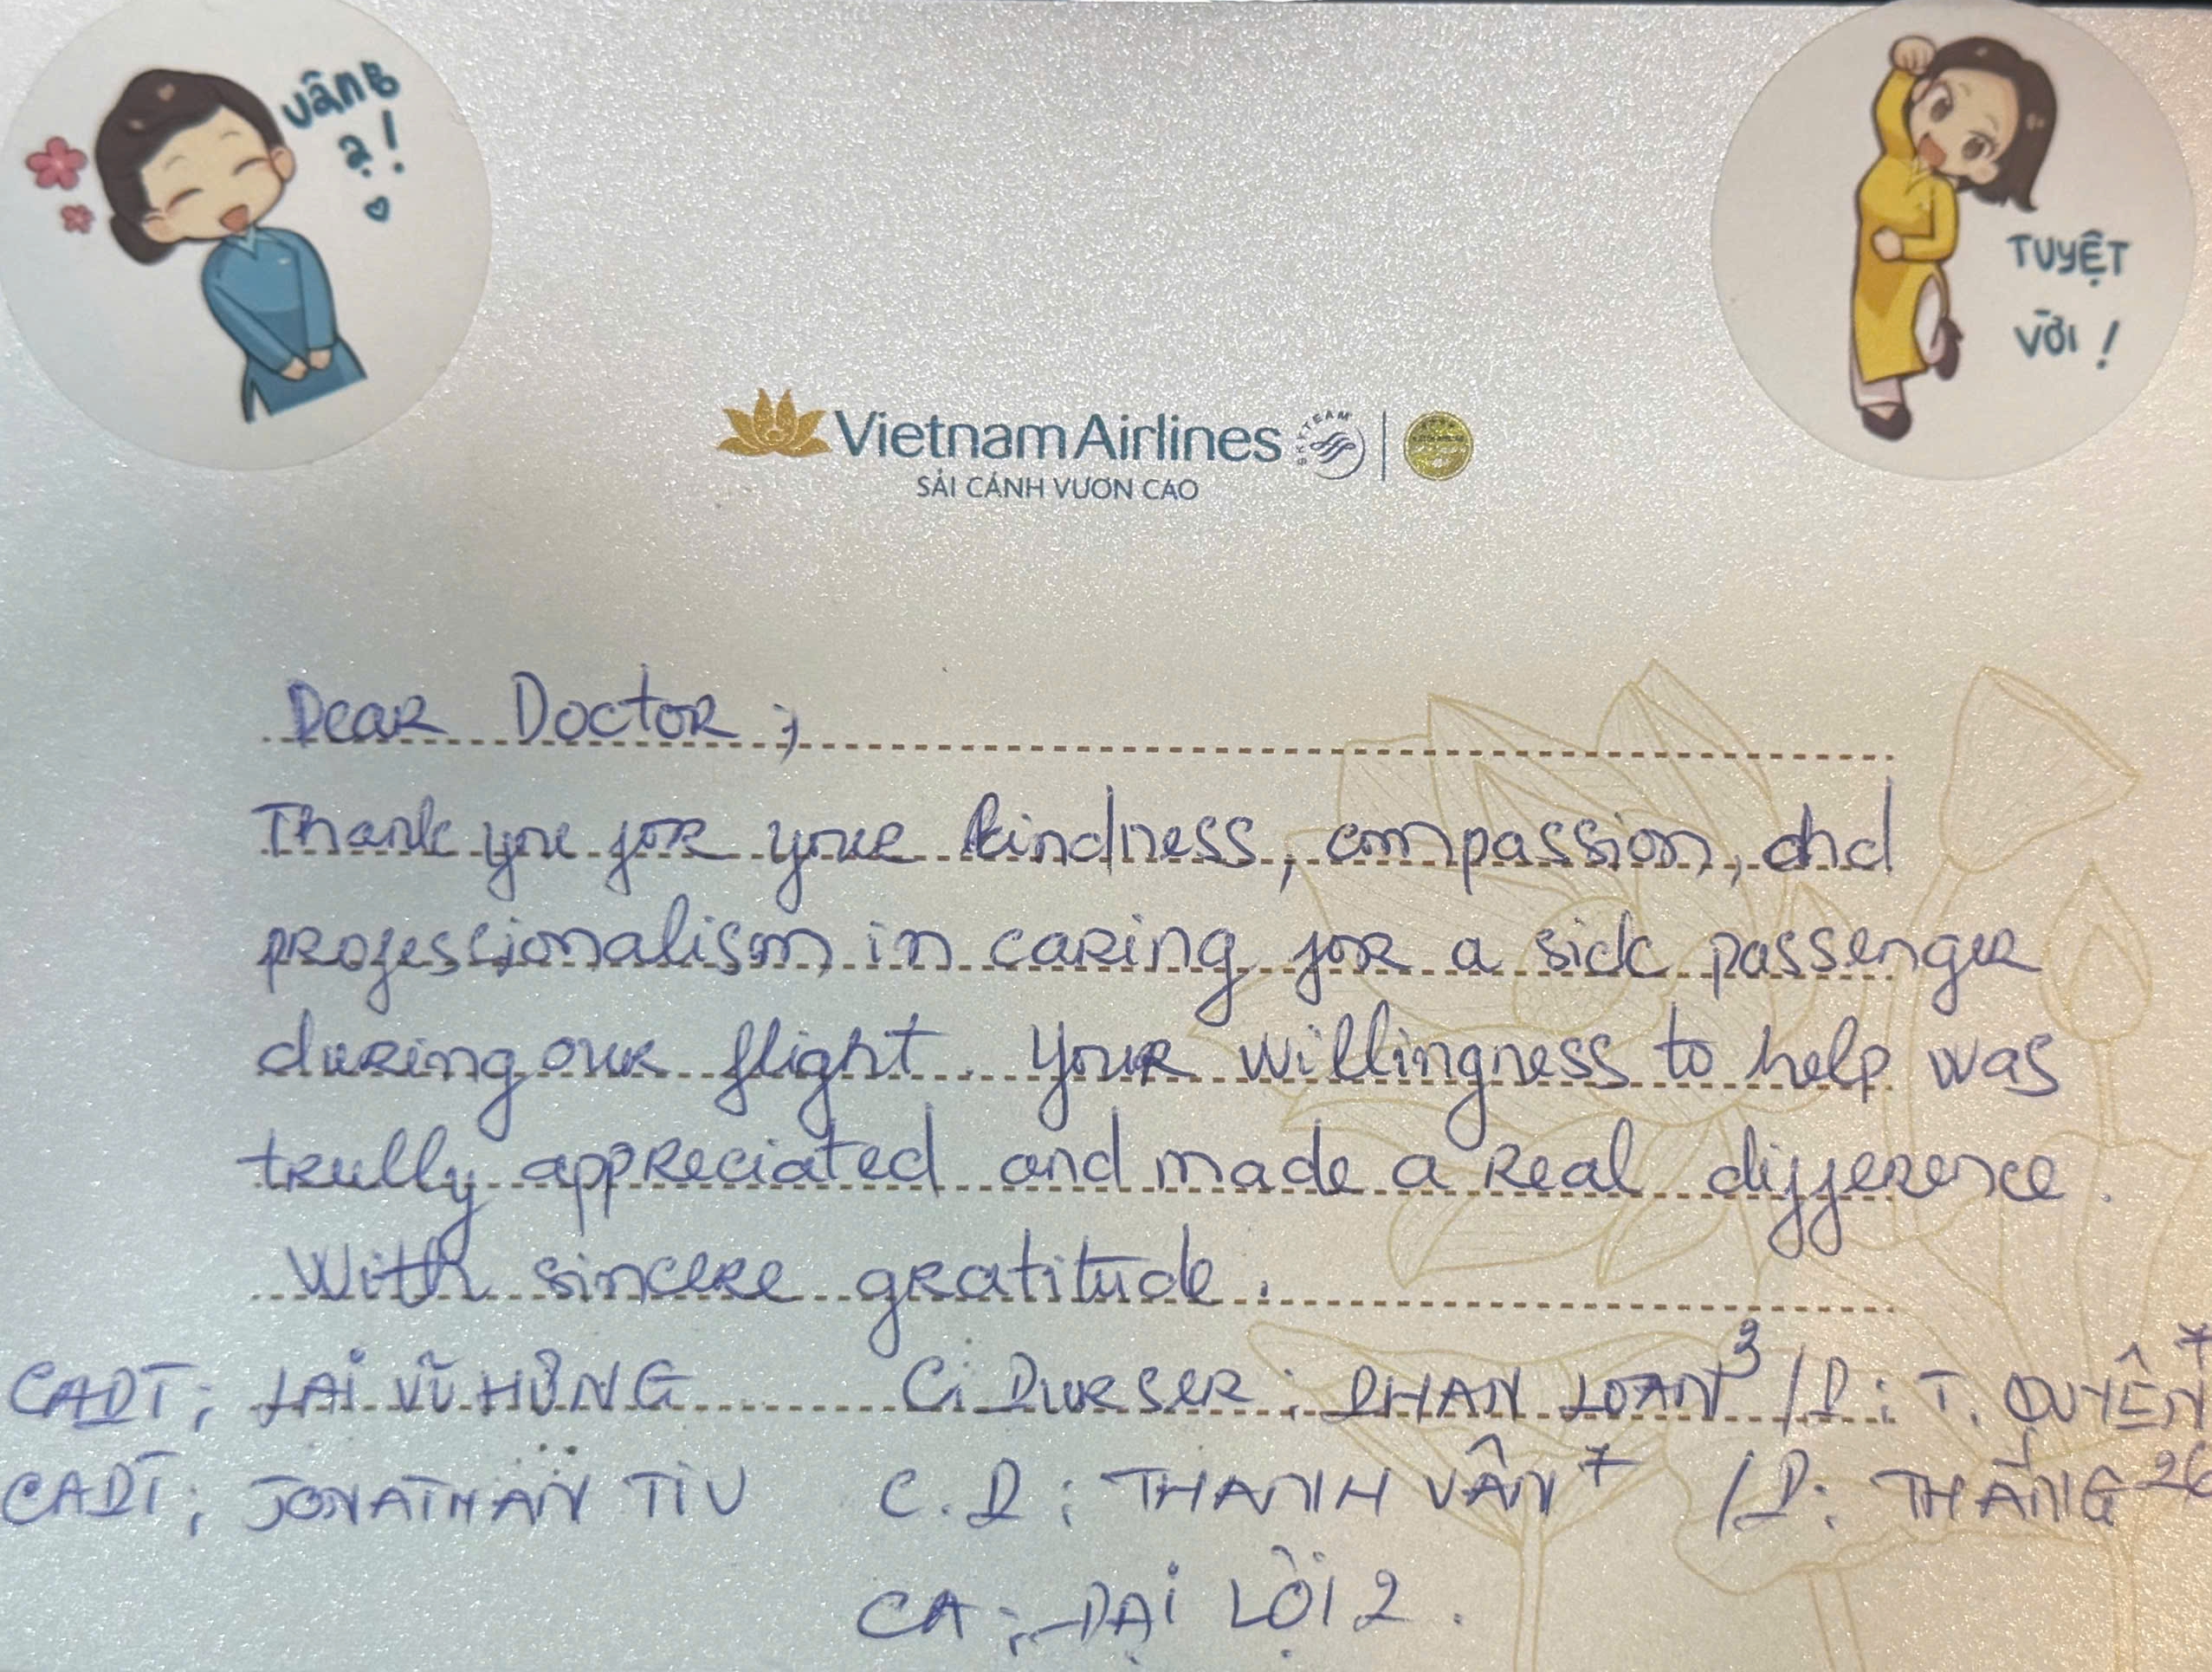 vâng
ạ!
TUYỆT
VỜI!
Vietnam Airlines SKYTEAM
SẢI CÁNH VƯƠN CAO
Dear Doctor;
Thank you for your kindness, compassion, and
professionalism in caring for a sick passenger
during our flight. Your willingness to help was
trully appreciated and made a real difference.
With sincere gratitude.
CAPT: LẠI VŨ HÙNG C. PURSER: PHAN LOAN 3 / P: T. QUYÊN 7
CAPT: JONATHAN TIU C.P: THANH VÂN 7 / P: THẮNG 26
CA: ĐẠI LỘI 2.